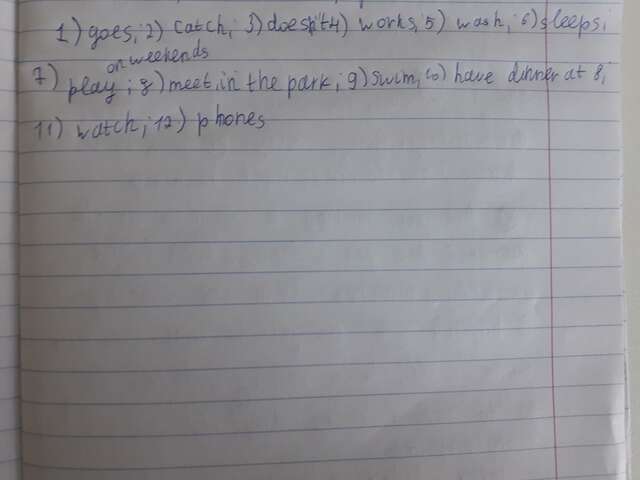 1) goes; 2) catch; 3) doesn't 4) works, 5) wash, 6) sleeps;
on weekends
7) play; 8) meet in the park; 9) swim, 10) have dinner at 8;
11) watch; 12) phones